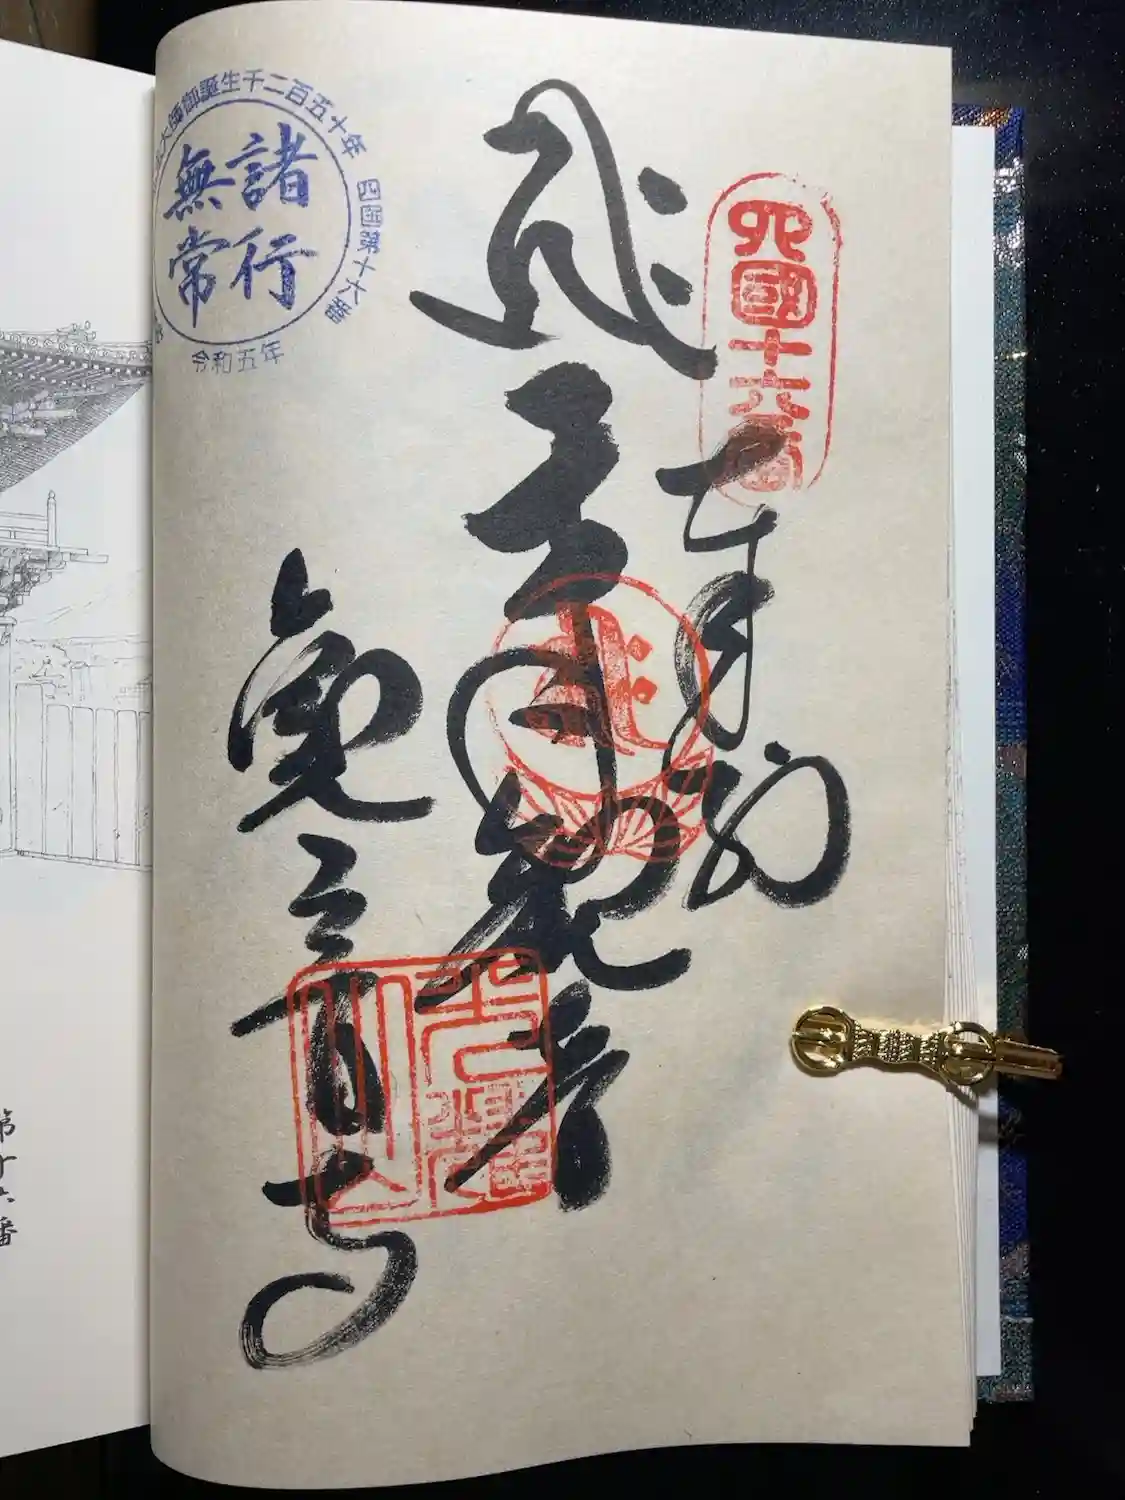 四國十六番
奉納
千手観音
観音寺
光耀山
大師御誕生千二百五十年
四国第十六番
諸行
無常
令和五年
第十六番